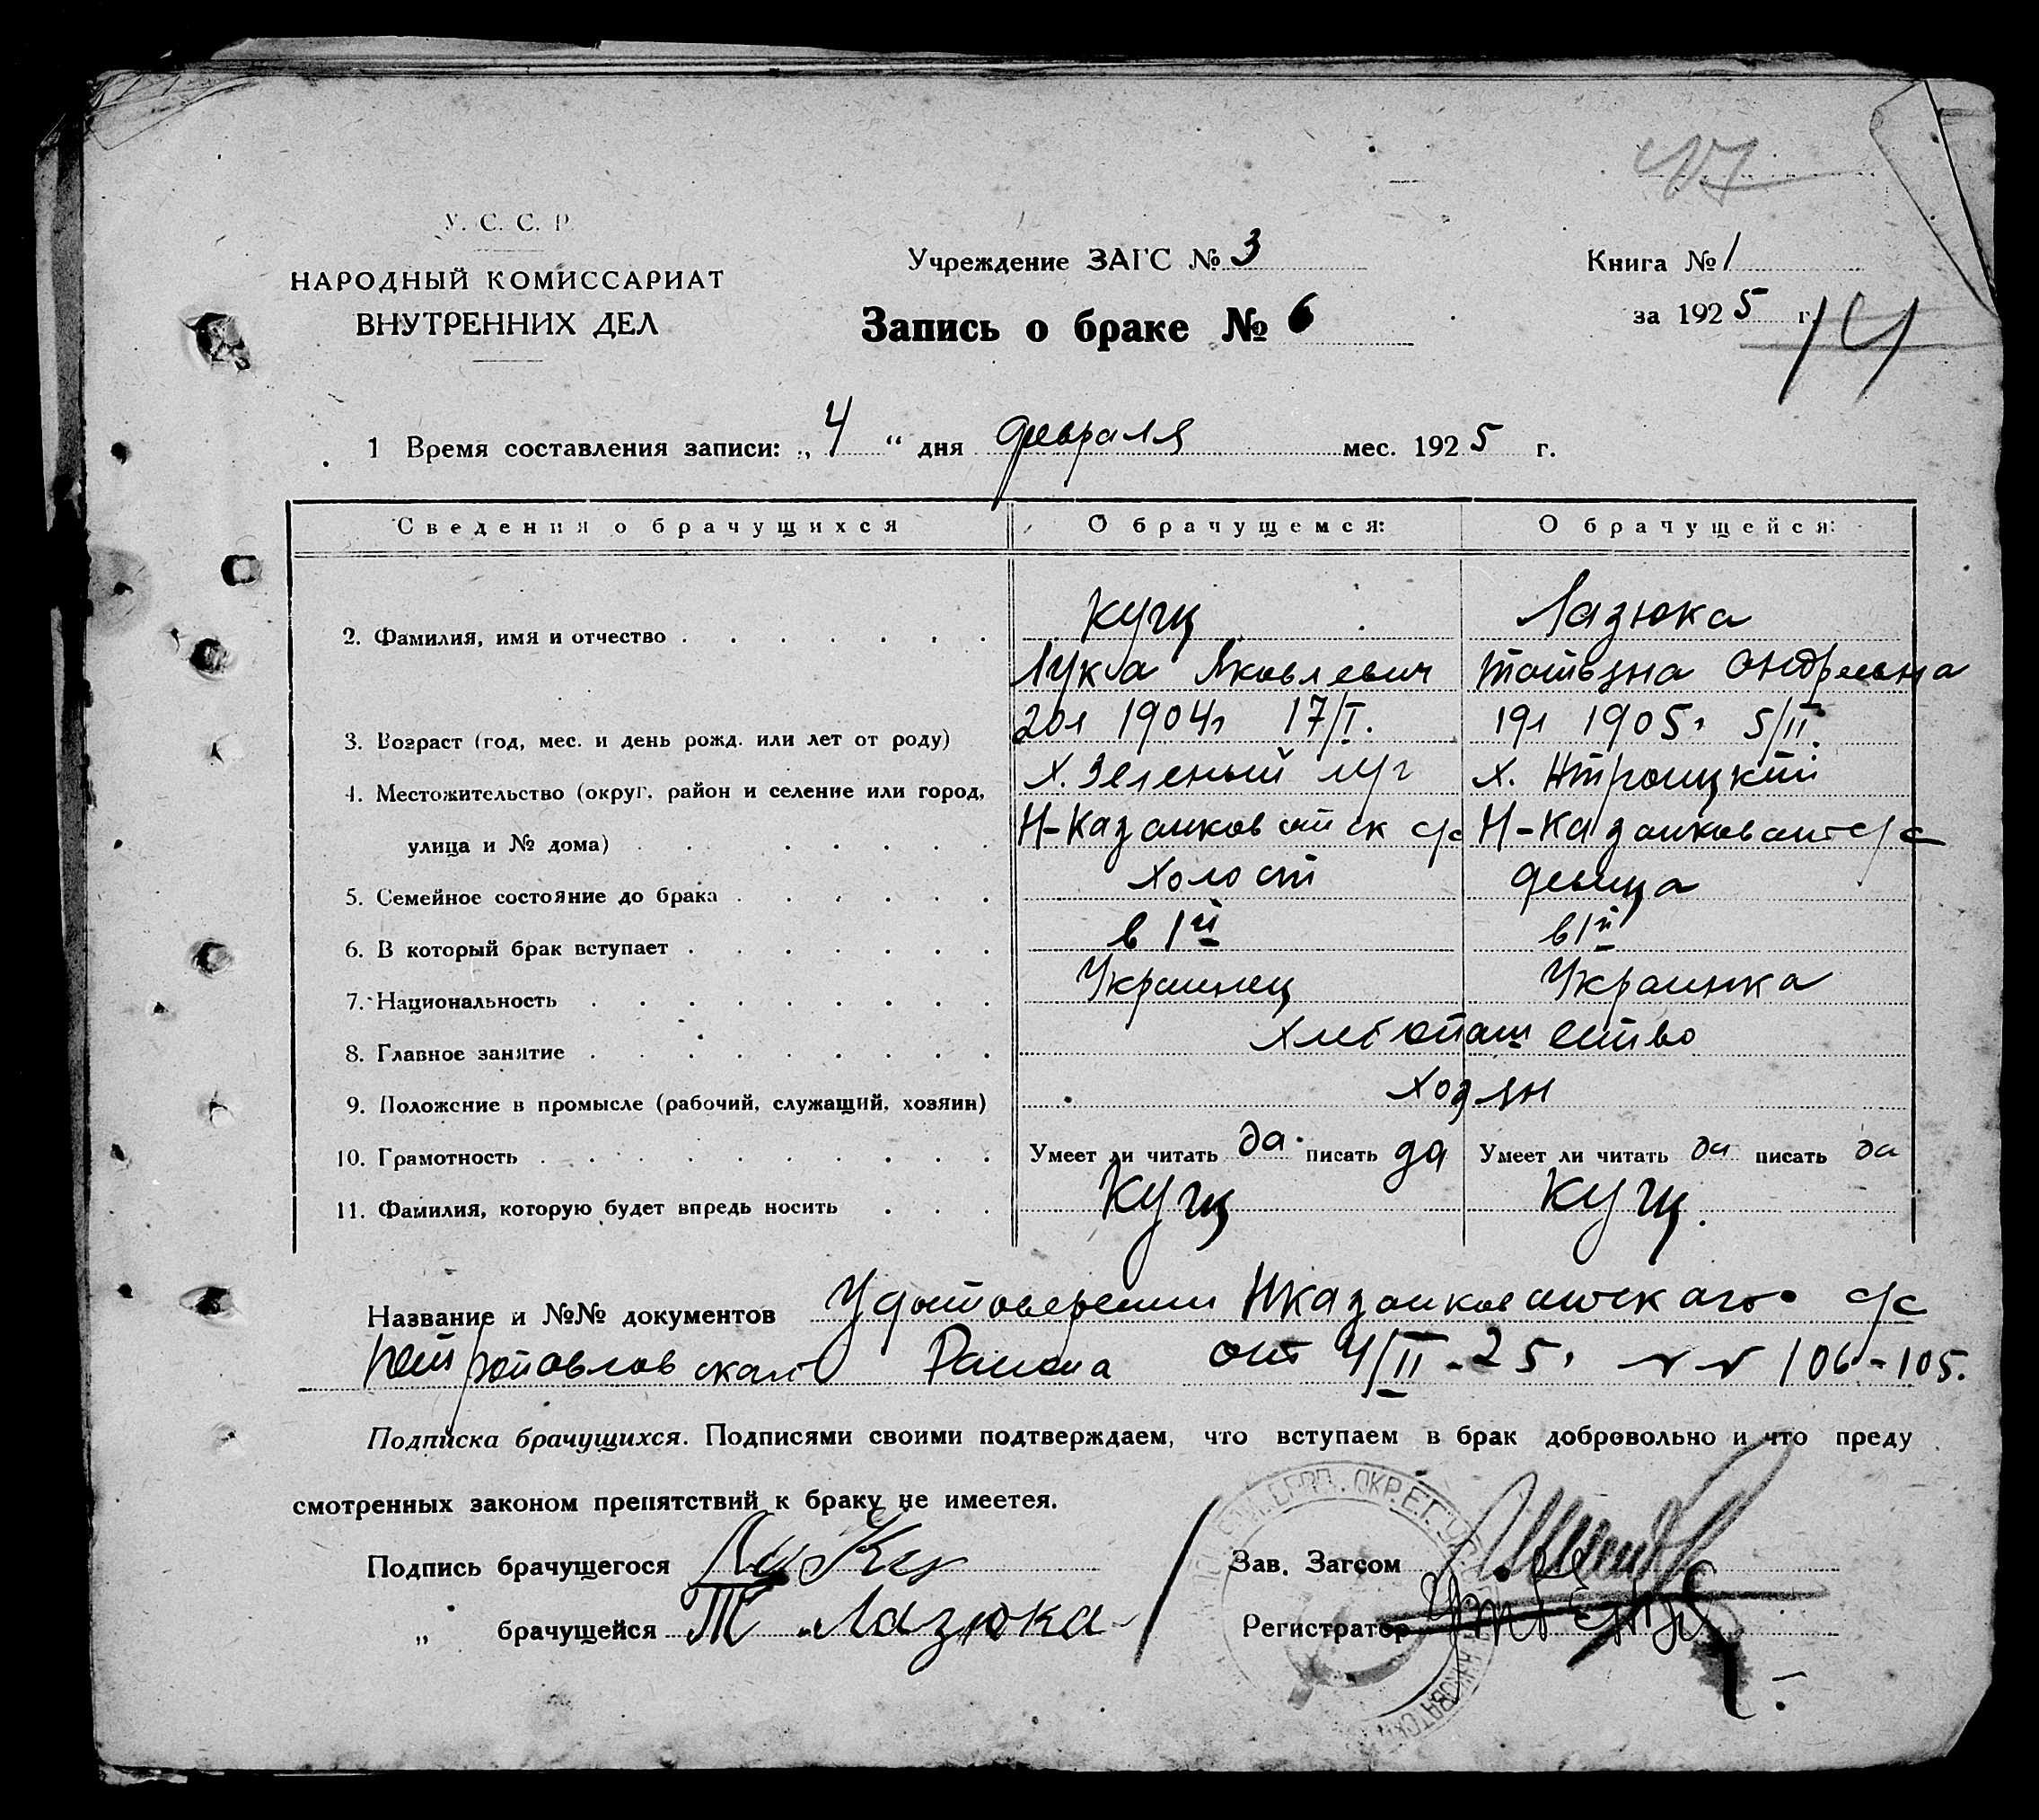 У. С. С. Р.
НАРОДНЫЙ КОМИССАРИАТ
ВНУТРЕННИХ ДЕЛ
Учреждение ЗАГС № 3
Запись о браке № 6
Книга № 1
за 1925 г.
14
1 Время составления записи: „ 4 “ дня февраля мес. 1925 г.
Сведения о брачущихся О брачущемся: О брачущейся:
Куцц Лазюка
2. Фамилия, имя и отчество
Лука Яковлевич Татьяна Андреевна
3. Возраст (год, мес. и день рожд. или лет от роду) 20л 1904г 17/I. 19л 1905г 5/II.
4. Местожительство (округ, район и селение или город, х. Зеленый луг х. Нтроицкий
улица и № дома) Н-Казанковатск с/с Н-Казанковатс/с
5. Семейное состояние до брака холост девица
6. В который брак вступает в 1й в 1й
7. Национальность Украинец Украинка
8. Главное занятие хлебопашество
9. Положение в промысле (рабочий, служащий, хозяин) хозяин
10. Грамотность Умеет ли читать да писать да Умеет ли читать да писать да
11. Фамилия, которую будет впредь носить Куцц Куцц.
Название и №№ документов Удостоверении Нказанковатского с/с
Петропавловского Района от 4/II-25г 106-105.
Подписка брачущихся. Подписями своими подтверждаем, что вступаем в брак добровольно и что преду
смотренных законом препятствий к браку не имеетея.
Подпись брачущегося
Зав. Загсом
„ брачущейся Т Лазюка
Регистратор